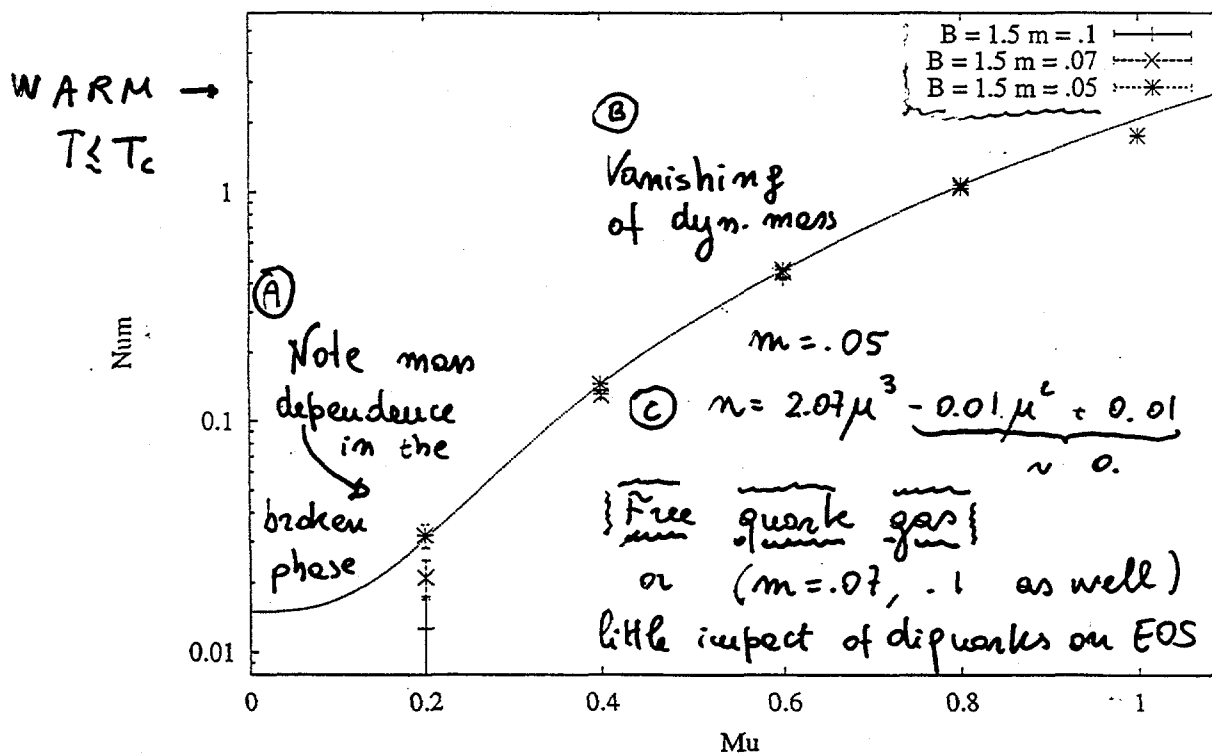 B = 1.5 m = .1
B = 1.5 m = .07
B = 1.5 m = .05
WARM →
T ≲ Tc
B
Vanishing
of dyn. mass
A
Note mass
dependence
in the
broken
phase
m = .05
C n = 2.07μ³ - 0.01μ² + 0.01
~ 0.
Free quark gas
or (m = .07, .1 as well)
little impact of diquarks on EOS
Num
1
0.1
0.01
0 0.2 0.4 0.6 0.8 1
Mu